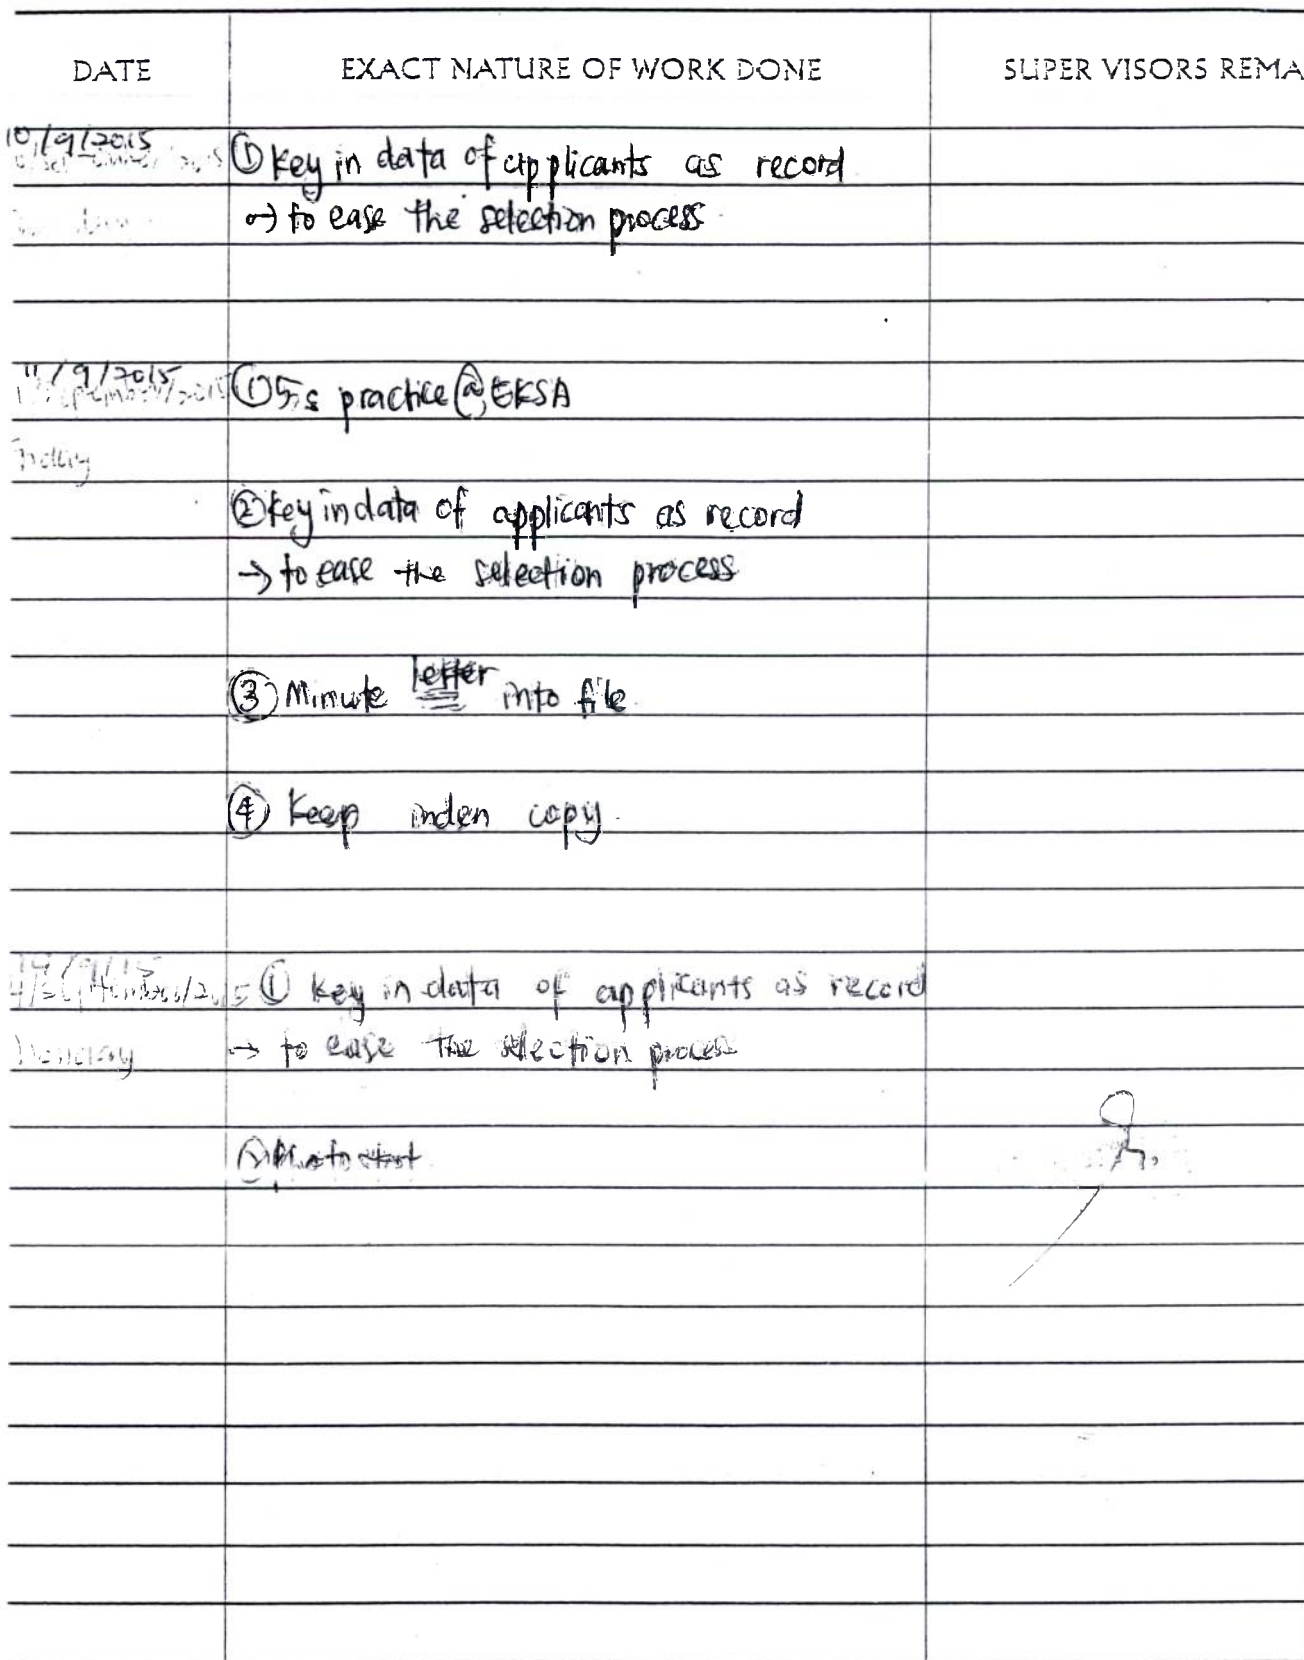 DATE EXACT NATURE OF WORK DONE SUPER VISORS REMA
10/9/2015 ① key in data of applicants as record
→ to ease the selection process
11/9/2015 ① 5s practice @ EKSA
Friday
② key in data of applicants as record
→ to ease the selection process
③ Minute letter into file
④ Keep inden copy
14/9/15 ① key in data of applicants as record
Monday → to ease the selection process